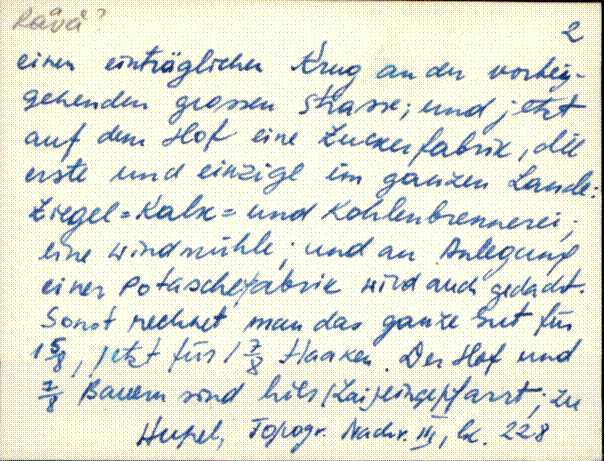 Rävä?
2
einen einträglichen Krug an der vorbey-
gehenden grossen Strasse; und jetzt
auf dem Hof eine Zuckerfabrik, die
erste und einzige im ganzen Lande:
Ziegel=Kalk= und Kohlenbrennerei;
eine Windmühle; und an Anlegung
einer Potaschefabrik wird auch gedacht.
Sonst rechnet man das ganze Gut für
1 5/8, jetzt für 1 7/8 Haaken. Der Hof und
7/8 Bauern sind hier (Lais) eingepfarrt; zu
Hupel, Topogr. Nachr. III, lk. 228